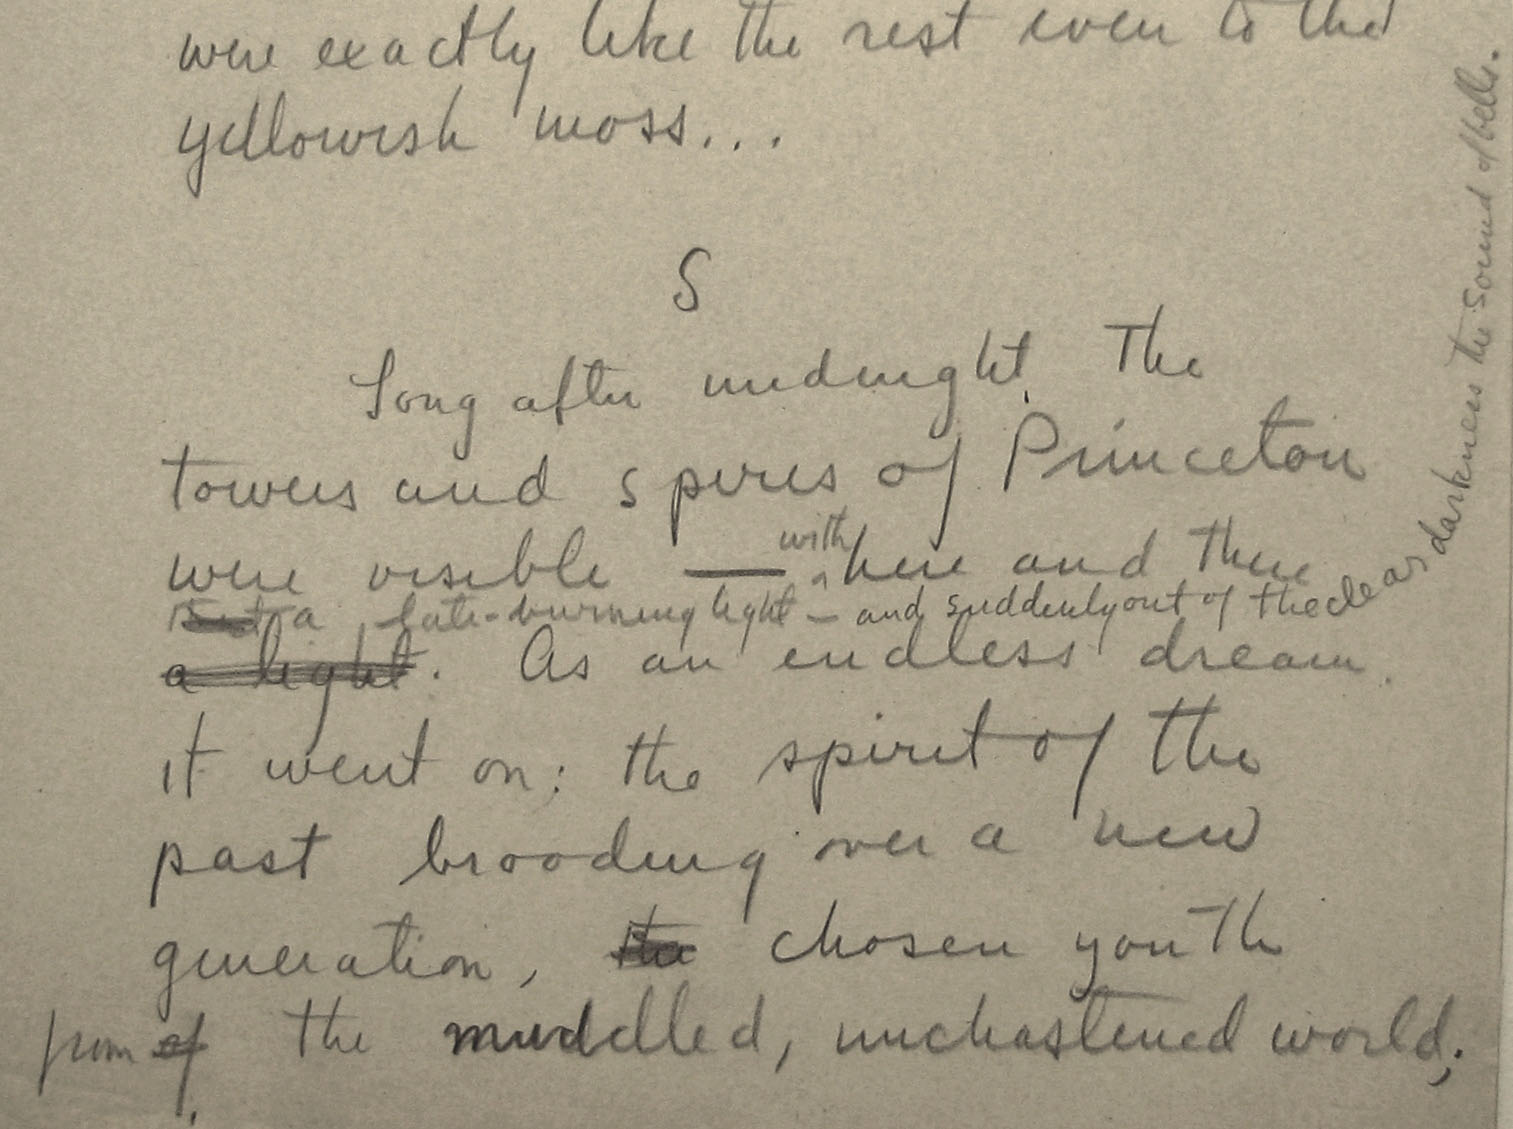 were exactly like the rest even to the
yellowish moss...
S
Long after midnight. The
towers and spires of Princeton
were visible — with here and there
a late-burning light — and suddenly out of the clear darkness the sound of bells.
a light. As an endless dream
it went on; the spirit of the
past brooding over a new
generation, the chosen youth
from of the muddled, unchastened world;